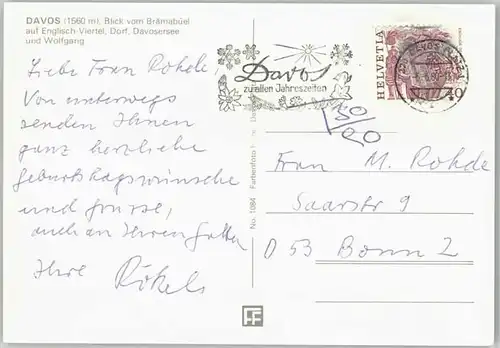 DAVOS (1560 m), Blick vom Brämabüel
auf Englisch-Viertel, Dorf, Davosersee
und Wolfgang
Liebe Frau Rohde,
Von unterwegs
senden Ihnen
ganz herzliche
Geburtstagswünsche
und Grüsse,
auch an Ihren Gatten
Ihre
Davos
zu allen Jahreszeiten
HELVETIA
40
DAVOS
50
90
No. 1084 Farbenfoto
Frau M. Rohde
Saarstr 9
D 53 Bonn 2
FF